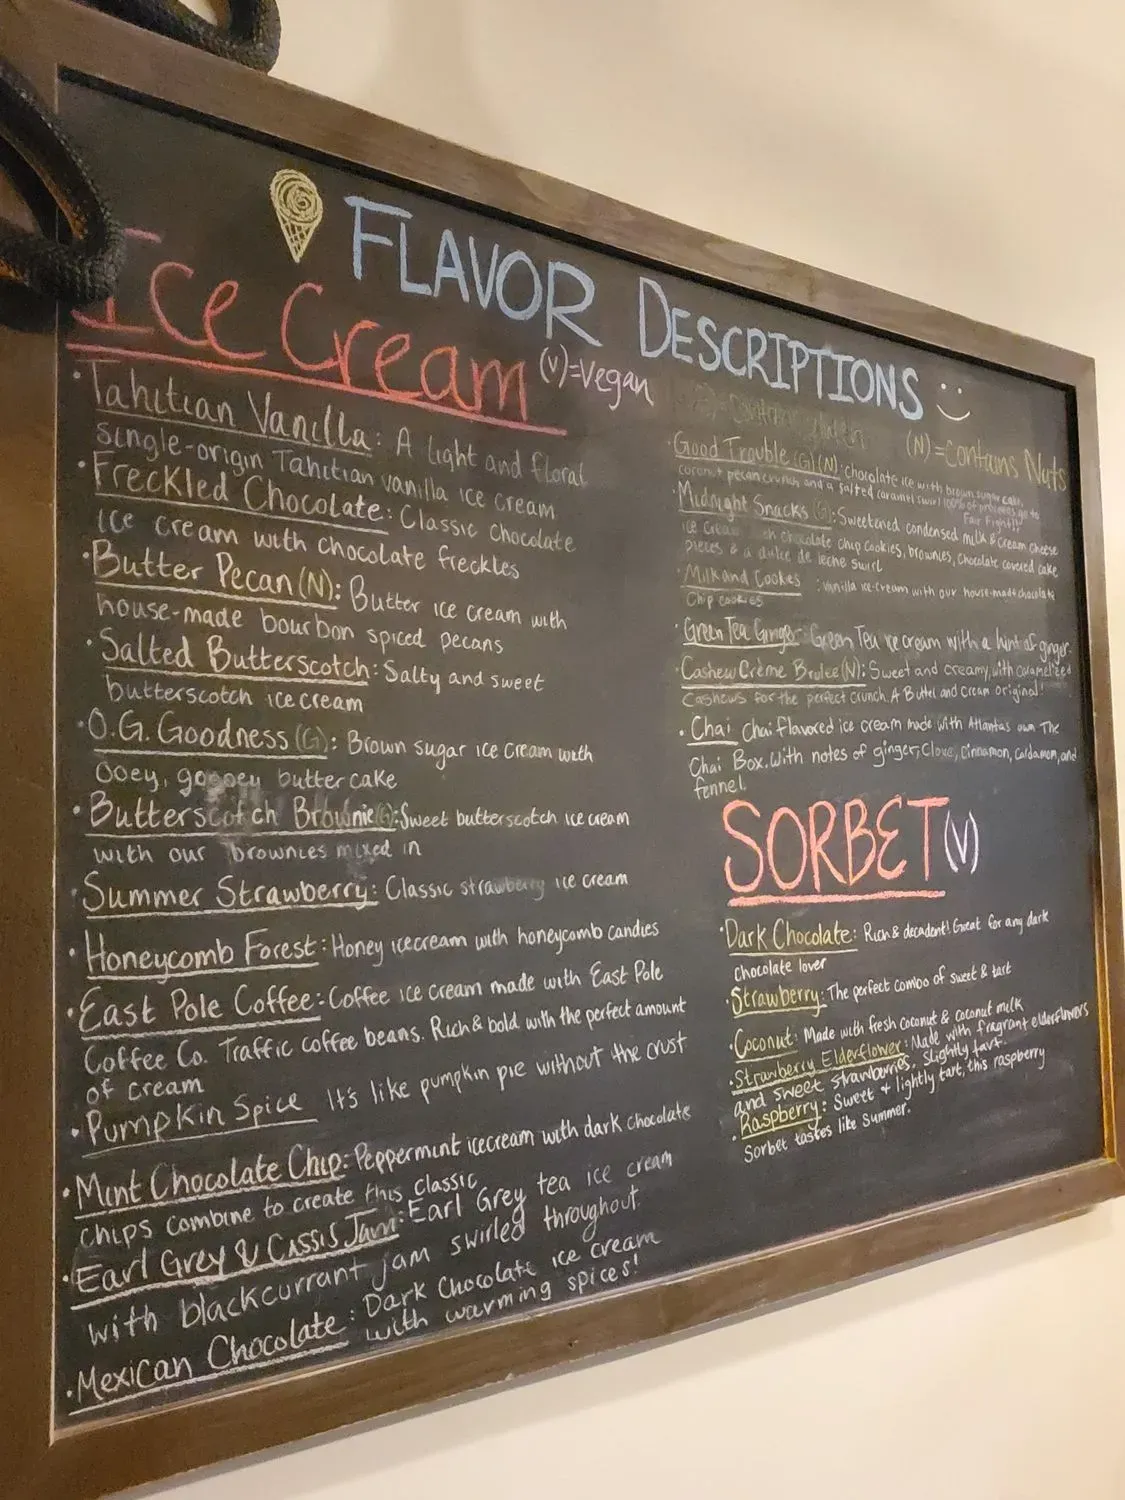 FLAVOR DESCRIPTIONS
Ice Cream (V)=Vegan
· Tahitian Vanilla: A light and floral
single-origin Tahitian vanilla ice cream
· Freckled Chocolate: Classic Chocolate
ice cream with chocolate freckles
· Butter Pecan (N): Butter ice cream with
house-made bourbon spiced pecans
· Salted Butterscotch: Salty and sweet
butterscotch ice cream
· O.G. Goodness (G): Brown sugar ice cream with
ooey, gooey butter cake
· Butterscotch Brownie (G): Sweet butterscotch ice cream
with our brownies mixed in
· Summer Strawberry: Classic strawberry ice cream
· Honeycomb Forest: Honey icecream with honeycomb candies
· East Pole Coffee: Coffee ice cream made with East Pole
Coffee Co. Traffic coffee beans. Rich & bold with the perfect amount
of cream
· Pumpkin Spice It's like pumpkin pie without the crust
· Mint Chocolate Chip: Peppermint icecream with dark chocolate
chips combine to create this classic
· Earl Grey & Cassis Jam: Earl Grey tea ice cream
with blackcurrant jam swirled throughout.
· Mexican Chocolate: Dark Chocolate ice cream
with warming spices!
(G)=Contains gluten (N)=Contains Nuts
· Good Trouble (G)(N): chocolate ice with brown sugar cake,
coconut pecan crunch and a salted caramel swirl 100% of proceeds go to
Fair Fight!!
· Midnight Snacks (G): Sweetened condensed milk & cream cheese
ice cream chocolate chip cookies, brownies, chocolate covered cake
pieces & a dulce de leche swirl
· Milk and Cookies : Vanilla ice-cream with our house-made chocolate
Chip cookies
· Green Tea Ginger: Green Tea ice cream with a hint of ginger.
· Cashew Crème Brulee (N): Sweet and creamy, with caramelized
Cashews for the perfect crunch. A Butter and Cream original!
· Chai Chai flavored ice cream made with Atlantas own The
Chai Box. With notes of ginger, Clove, Cinnamon, Cardamom, and
fennel.
SORBET (V)
· Dark Chocolate: Rich & decadent! Great for any dark
chocolate lover
· Strawberry: The perfect combo of sweet & tart
· Coconut: Made with fresh coconut & coconut milk
· Strawberry Elderflower: Made with fragrant elderflowers
and sweet strawberries, slightly tart.
· Raspberry: Sweet + lightly tart, this raspberry
Sorbet tastes like Summer.